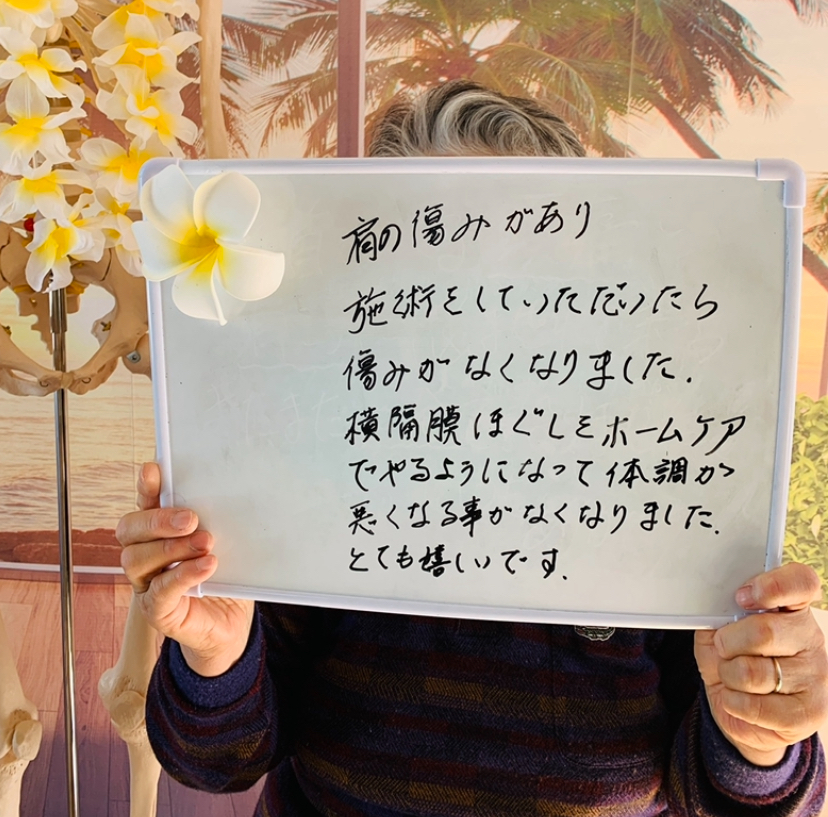 肩の傷みがあり
施術をしていただいたら
傷みがなくなりました.
横隔膜ほぐしをホームケア
でやるようになって体調が
悪くなる事がなくなりました.
とても嬉しいです.